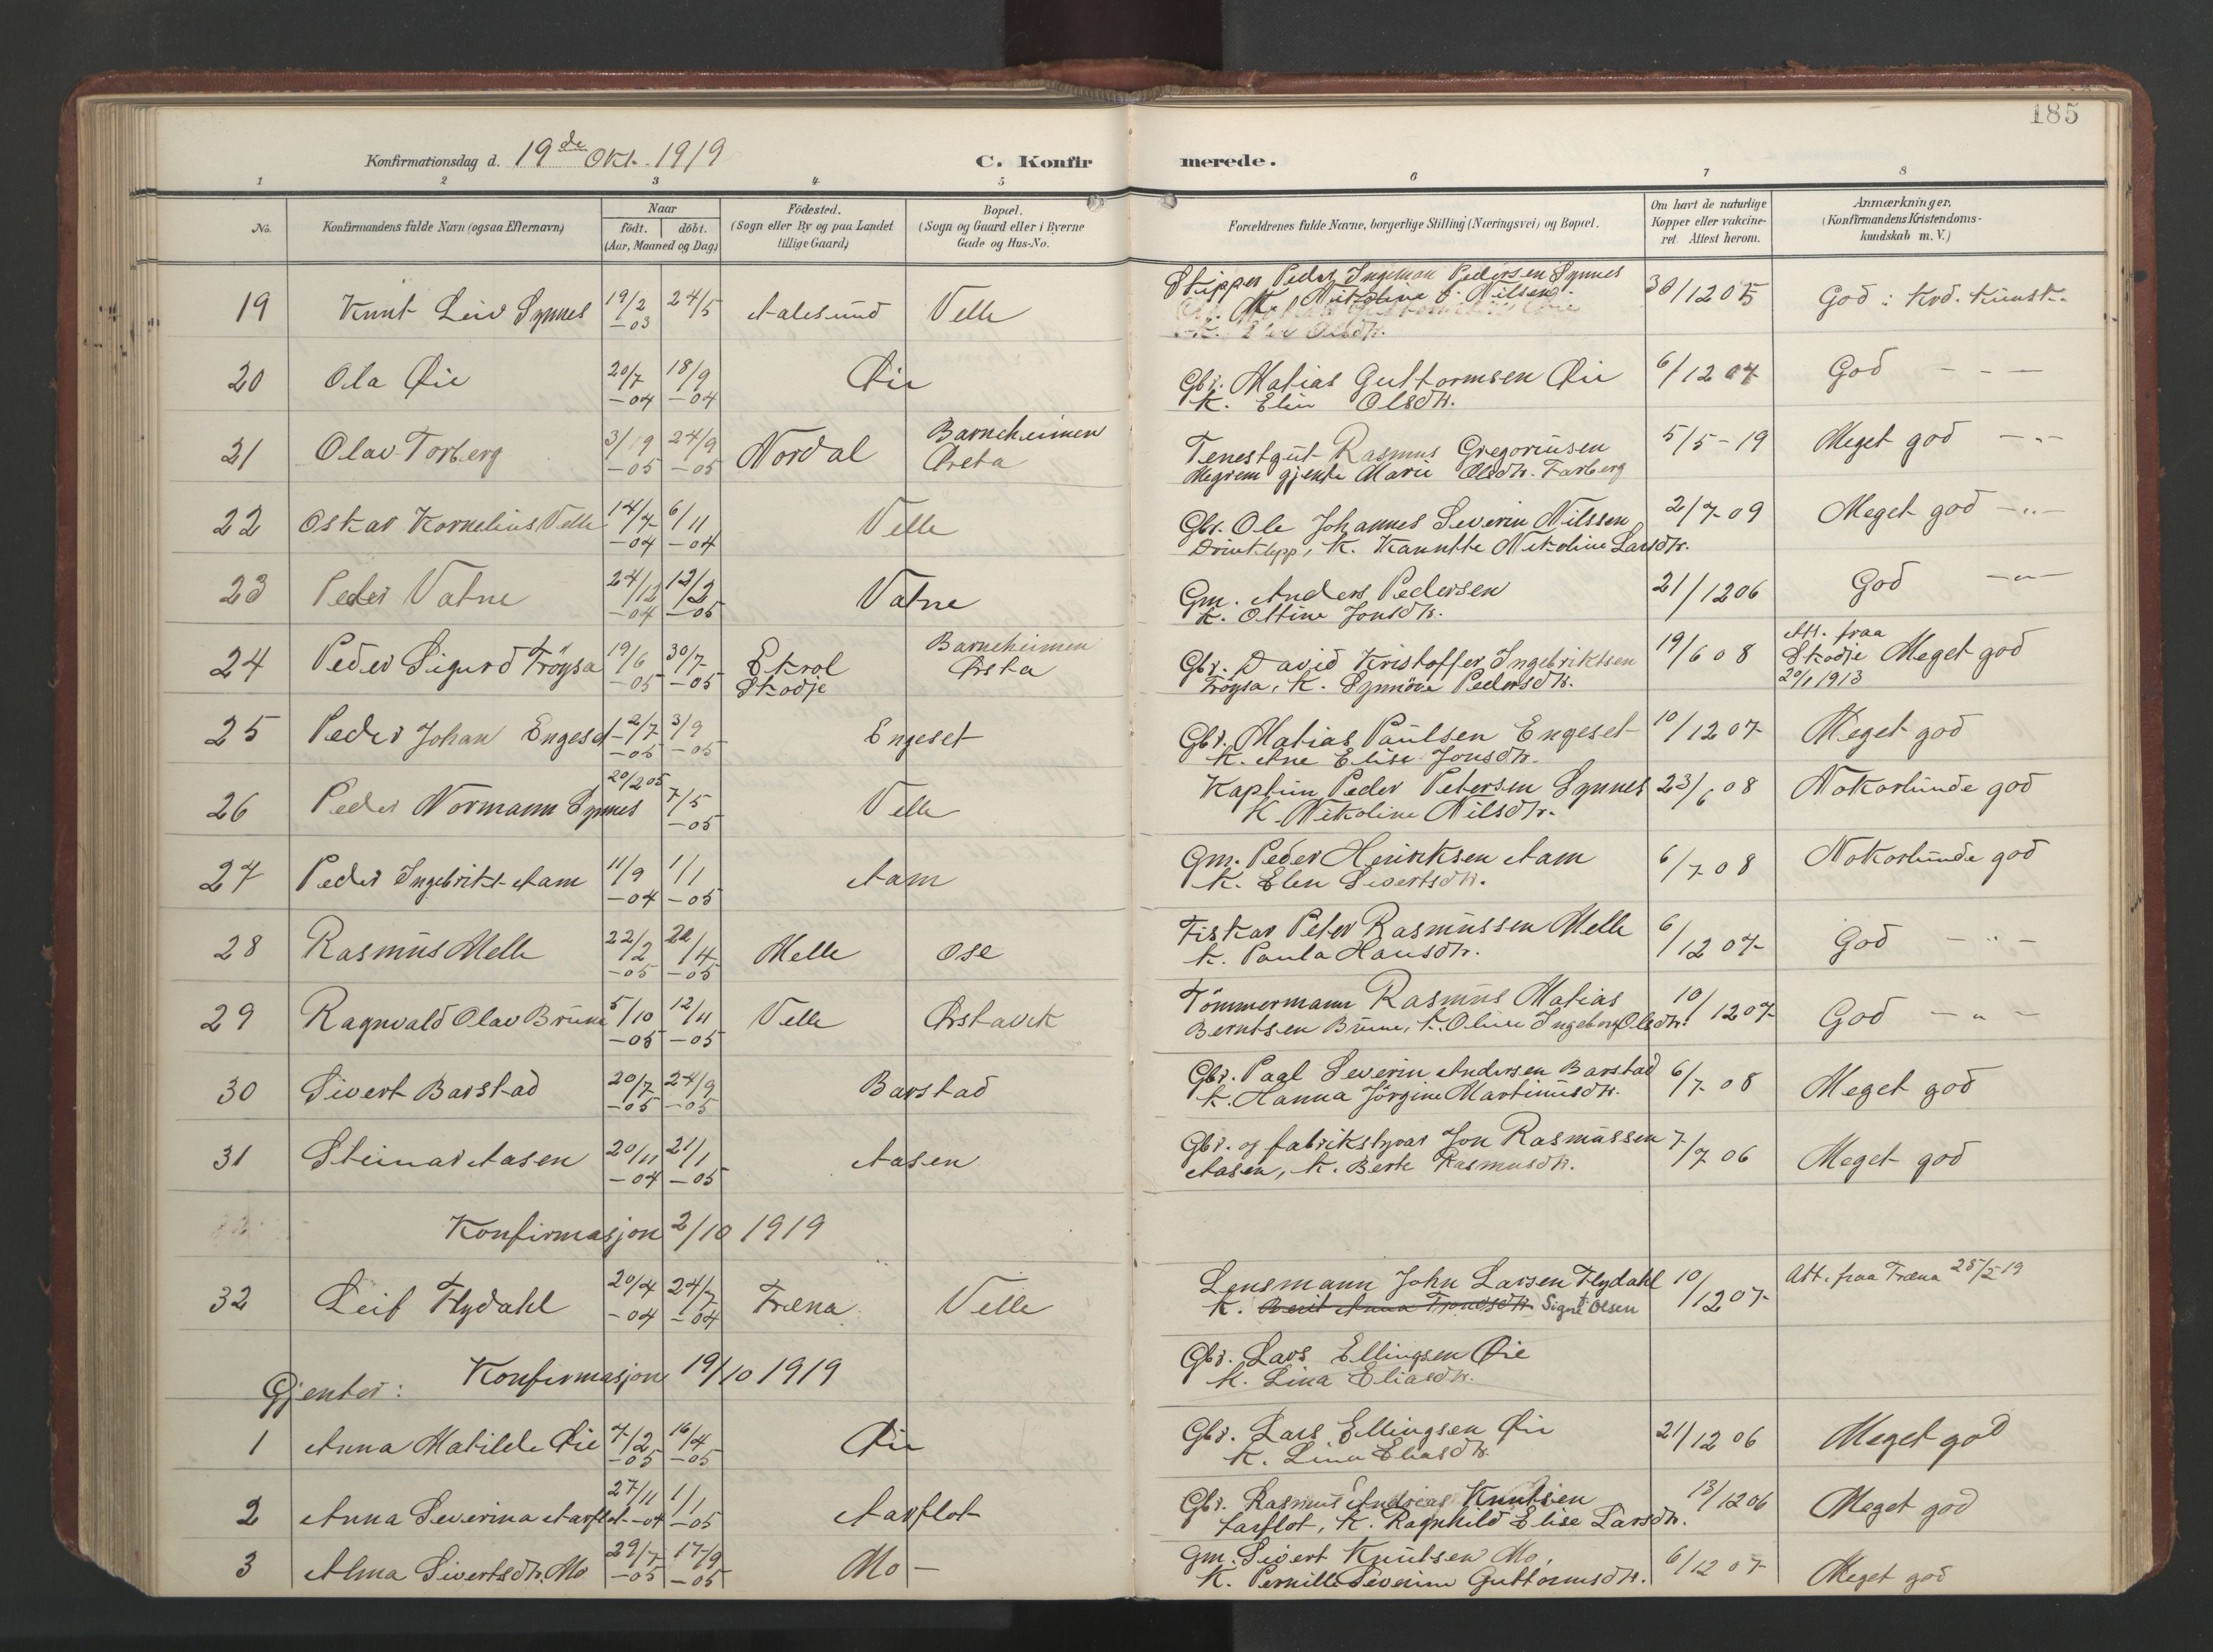 185
Konfirmationsdag d. 19de Okt. 1919 C. Konfirmerede.
1 2 3 4 5 6 7 8
No. Konfirmandens fulde Navn (ogsaa Efternavn) Naar födt. döbt. (Aar, Maaned og Dag) Födested. (Sogn eller By og paa Landet tillige Gaard) Bopæl. (Sogn og Gaard eller i Byerne Gade og Hus-No. Forældrenes fulde Navne, borgerlige Stilling (Næringsvei) og Bopæl. Om havt de naturlige Kopper eller vakcineret. Attest herom. Anmærkninger. (Konfirmandens Kristendomskundskab m. V.)
19 Knut Leiv Synnes 19/2 -03 24/5 Aalesund Velle Skipper Peder Ingeman Pedersen Synnes 30/12 05 God : Krd. Kunsk.
K. Nikolina J. Nilsen.
K. Elen Olsdtr.
20 Ola Øie 20/7 -04 18/9 -04 Øie Gbr. Matias Guttormsen Øie 6/12 07 God - - -
K. Elin Olsdtr.
21 Olav Torberg 3/19 -05 24/9 -05 Nordal Barneheimen Ørsta Tenestgut Rasmus Gregoriusen 5/5-19 Meget god -"-
gjente Marie Olsdtr. Farberg
22 Oskar Kornelius Velle 14/7 -04 6/11 -04 Velle Gbr. Ole Johannes Severin Nilssen 2/7-09 Meget god -"-
K. Nikoline Larsdtr.
23 Peder Vatne 24/12 -04 12/2 -05 Vatne Gm. Anders Pedersen 21/12 06 God -"-
K. Ottine Jonsdtr.
24 Peder Sigurd Tröysa 19/6 -05 30/7 -05 Ekrol Skodje Barneheimen Ørsta Gbr. David Kristoffer Ingebriktsen 19/6 08 Att. fraa Skodje 20/1 1913 Meget god
Tröysa, K. Synnöve Pedersdtr.
25 Peder Johan Engeset 2/7 -05 3/9 -05 Engeset Gbr. Matias Paulsen Engeset 10/12 07 Meget god
K. Ane Elise Jonsdtr.
26 Peder Normann Synnes 20/2 05 7/5 -05 Velle Kaptein Peder Petersen Synnes 23/6 08 Nokorlunde god
K. Nikoline Nilsdtr.
27 Peder Ingebrikt Aam 11/9 -04 1/1 -05 Aam Gm. Peder Henriksen Aam 6/7-08 Nokorlunde god
K. Elen Sivertsdtr.
28 Rasmus Melle 22/2 -05 /4 -05 Melle Ose Fiskar Peter Rasmussen Melle 6/12 07 God - " -
K. Paula Hansdtr.
29 Ragnvald Olav Brune 5/10 -05 12/11 -05 Velle Ørstavik Tömmermann Rasmus Matias 10/12 07 God - " -
Berntsen Brune, K. Oline Ingeborg Olsdtr.
30 Sivert Barstad 20/7 -05 24/9 -05 Barstad Gbr. Paal Severin Andersen Barstad 6/7-08 Meget god
K. Hanna Jörgine Martinusdtr.
31 Steinar Aasen 20/11 -04 21/1 -05 Aasen Gbr. og fabrikstyrar Jon Rasmussen 7/7 06 Meget god
Aasen, K. Berte Rasmusdtr.
Konfirmasjon 2/10 1919
32 Leif Flydahl 20/4 -04 24/7 -04 Fræna Velle Lensmann John Larsen Flydahl 10/12 07 Att. fraa Fræna 25/5 19
K. Berit Anna Trondsdtr. Signe Olsen
Gjenter: Konfirmasjon 19/10 1919 Gbr. Lars Ellingsen Øie
K. Lina Eliasdtr.
1 Anna Matilde Øie 7/2 -05 16/4 -05 Øie Gbr. Lars Ellingsen Øie 21/12 06 Meget god
K. Lina Eliasdtr.
2 Anna Severina Aarflot 27/11 -04 1/1 -05 Aarflot Gbr. Rasmus Andreas Knutsen 13/12 06 Meget god
Aarflot, K. Ragnhild Elise Larsdtr.
3 Alma Sivertsdtr. Mo 29/7 -05 17/9 -05 Mo - Gm. Sivert Knutsen Mo, 6/12 07 Meget god
K. Pernille Severine Guttormsdtr.